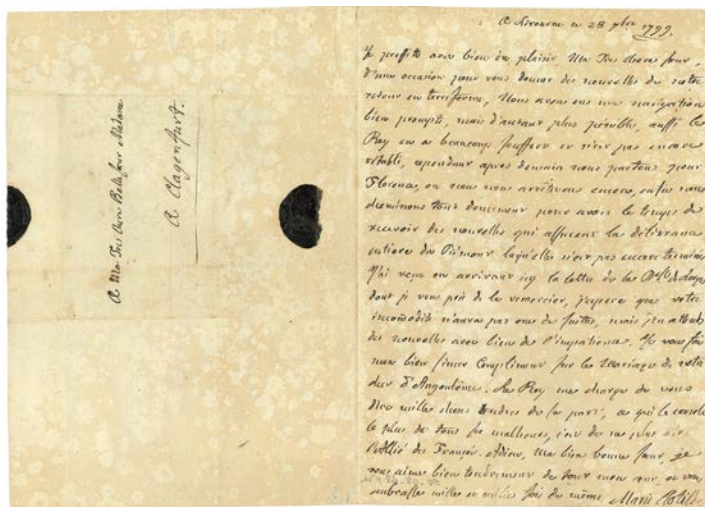 A Ma Tres chere Belle soeur Madame
A Clagenfurt.
A Livourne ce 28 7bre 1799.
Je proffitte avec bien du plaisir Ma Tres chere soeur,
d'une occasion pour vous donner des nouvelles de notre
retour en terreferme, Nous avons eus une navigation
bien prompte, mais d'autant plus penible, aussi le
Roy en a beaucoup souffert et n'est pas encore
retabli, cependant apres demain nous partons pour
Florence, ou nous nous arretterons encore, enfin nous
cheminons tout doucement pour avoir le temps de
recevoir des nouvelles qui assurent la delivrance
entiere du Piémont laquelle n'est pas encore terminée
J'ai reçu en arrivant icy la lettre de la
dont je vous prie de la remercier, j'espere que votre
incomodité n'aura pas eus de suittes, mais j'en attends
des nouvelles avec bien de l'impatience. Je vous fais
mon bien sincere Compliment sur le Mariage de votre
duc d'Angoulême. Le Roy me charge de vous
dire milles choses tendres de sa part, ce qui le console
le plus de tous ses malheurs, c'est de ne plus
l'Allié des François. Adieu, Ma bien bonne soeur, je
vous aime bien tendrement de tout mon coeur, et vous
embrasse milles et milles fois de même Marie Clotilde